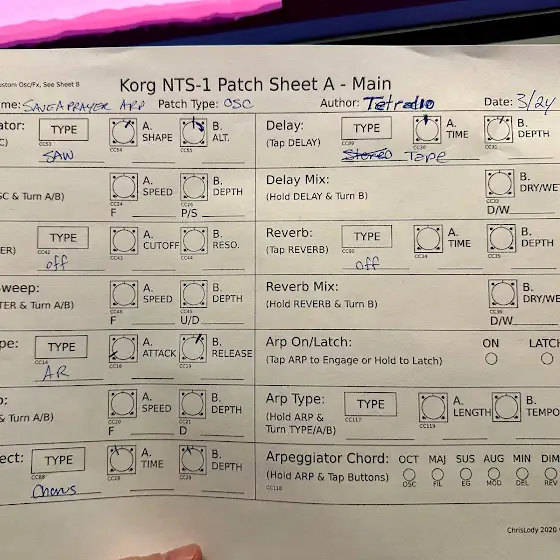 ustom Osc/Fx, See Sheet B
Korg NTS-1 Patch Sheet A - Main
me: SAVEAPRAYER ARP Patch Type: OSC Author: Tetradio Date: 3/24
ator: TYPE A. SHAPE B. ALT. Delay: TYPE A. TIME B. DEPTH
C) CC53 CC54 CC55 (Tap DELAY) CC89 CC30 CC31
SAW Stereo Tape
A. SPEED B. DEPTH Delay Mix: B. DRY/WE
SC & Turn A/B) CC24 CC26 (Hold DELAY & Turn B) CC33
F P/S D/W
TYPE A. CUTOFF B. RESO. Reverb: TYPE A. TIME B. DEPTH
ER) CC42 CC43 CC44 (Tap REVERB) CC90 CC34 CC35
off off
Sweep: A. SPEED B. DEPTH Reverb Mix: B. DRY/WE
TER & Turn A/B) CC46 CC45 (Hold REVERB & Turn B) CC36
F U/D D/W
pe: TYPE A. ATTACK B. RELEASE Arp On/Latch: ON LATCH
CC14 CC16 CC19 (Tap ARP to Engage or Hold to Latch)
AR
o: A. SPEED B. DEPTH Arp Type: TYPE A. LENGTH B. TEMPO
& Turn A/B) CC20 CC21 (Hold ARP & Turn TYPE/A/B) CC117 CC119
F D
ect: TYPE A. TIME B. DEPTH Arpeggiator Chord: OCT MAJ SUS AUG MIN DIM
CC88 CC28 CC29 (Hold ARP & Tap Buttons) OSC FIL EG MOD DEL REV
Chorus CC118
ChrisLody 2020